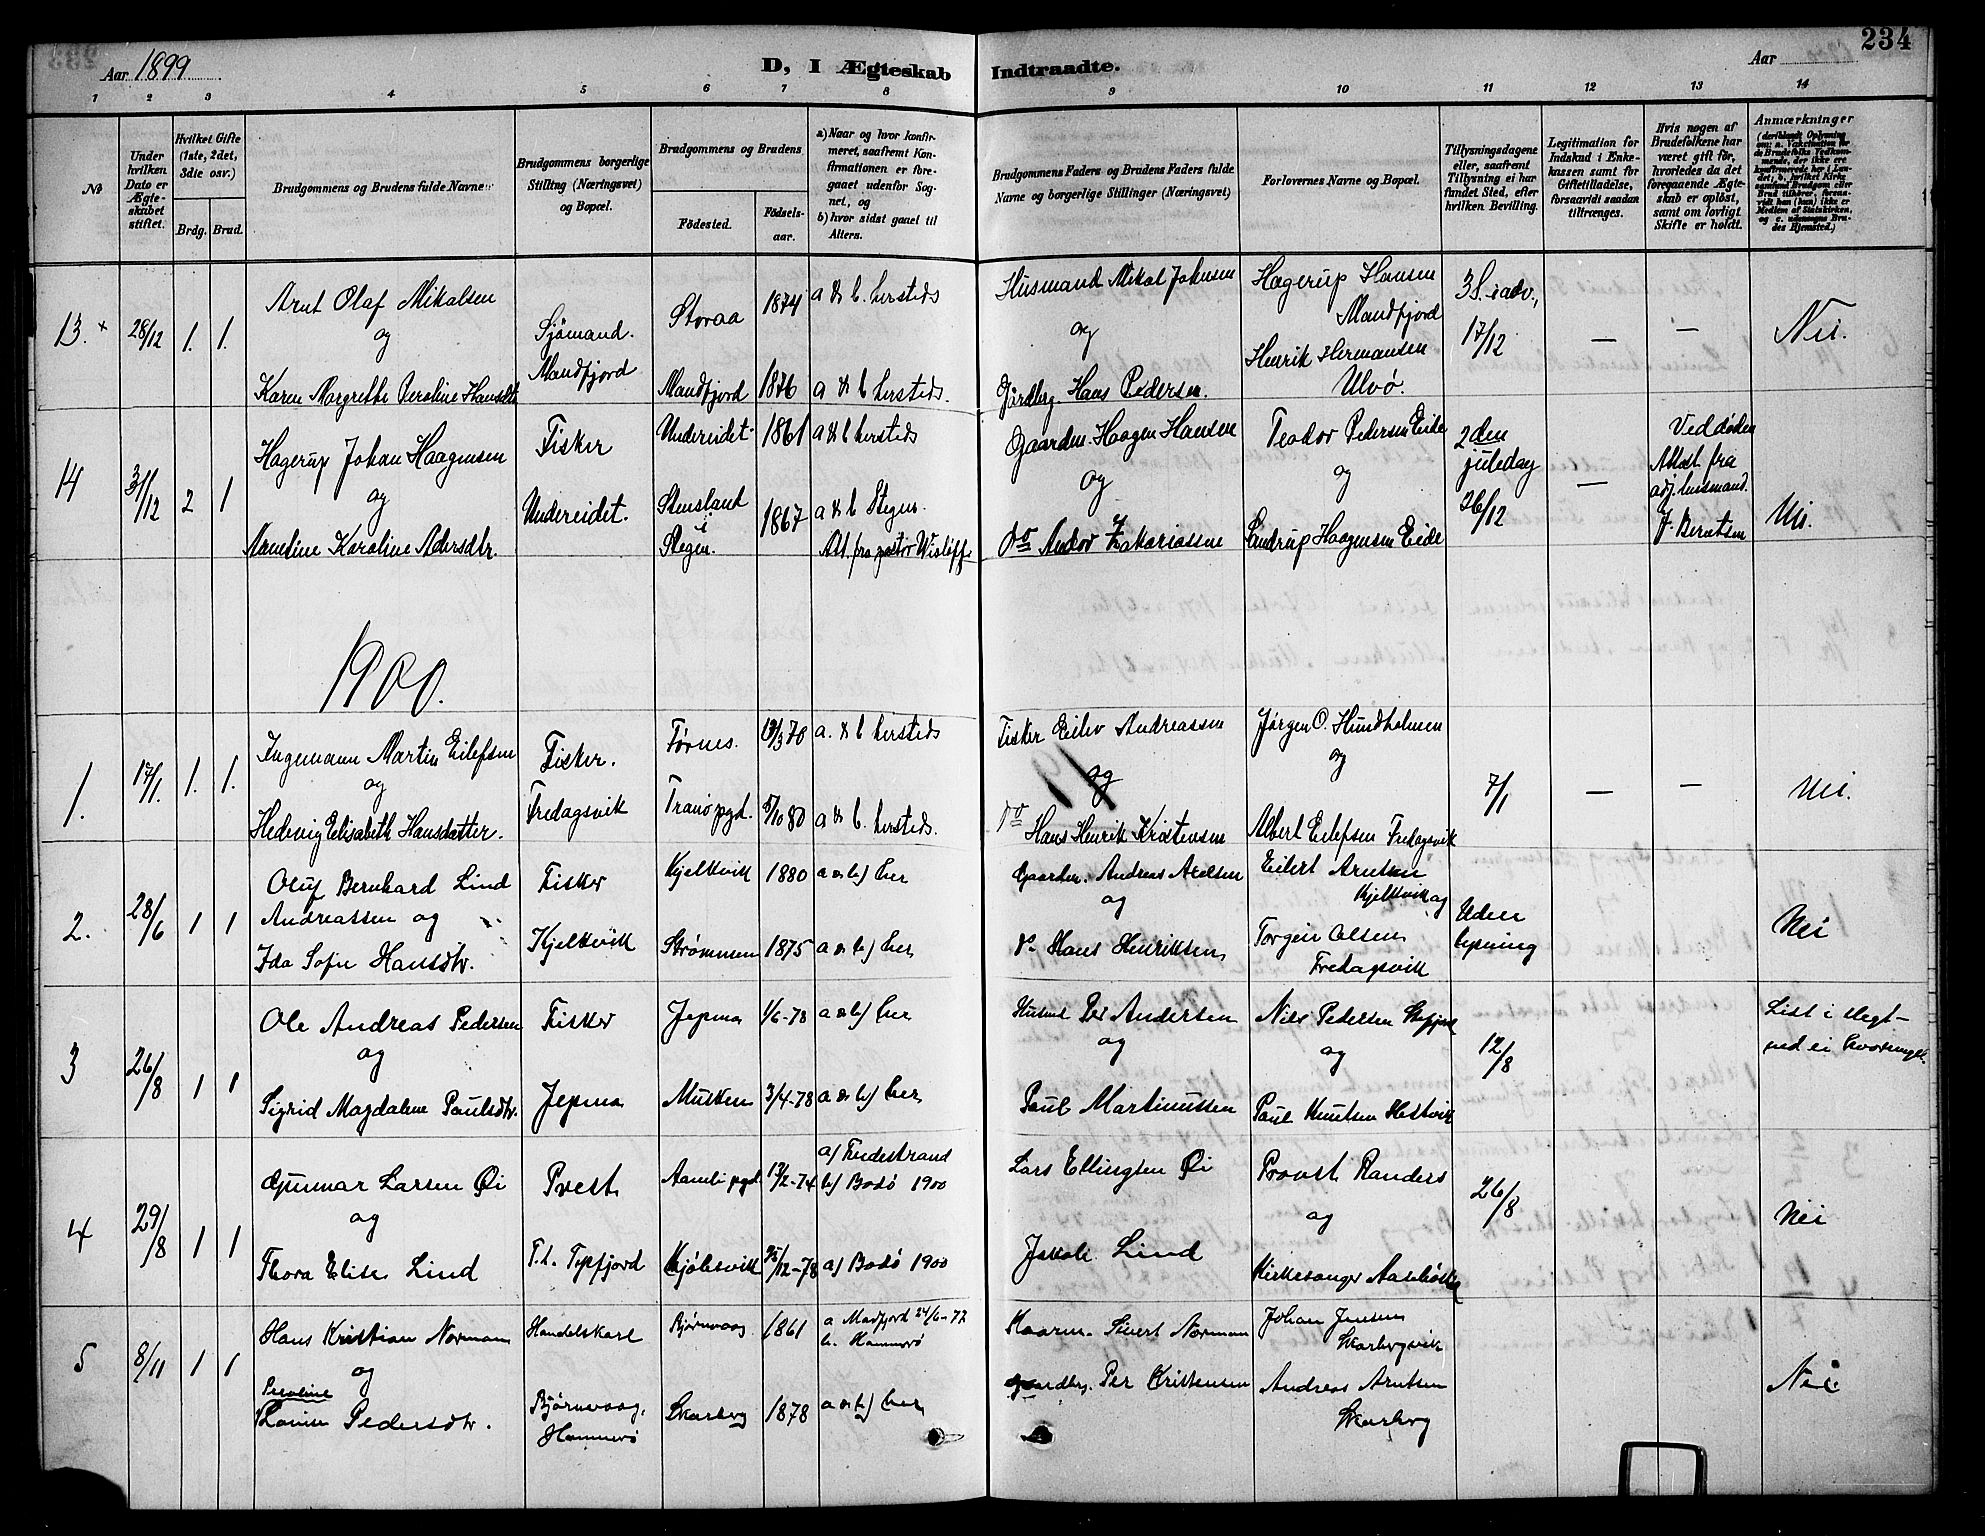 Aar 1899
D, I Ægteskab Indtraadte.
Aar
234
1 2 3 4 5 6 7 8 9 10 11 12 13 14
No
Under hvilken Dato er Ægteskabet stiftet.
Hvilket Gifte (1ste, 2det, 3die osv.)
Brdg. Brud.
Brudgommens og Brudens fulde Navne.
Brudgommens borgerlige Stilling (Næringsvei) og Bopæl.
Brudgommens og Brudens
Fødested. Fødselsaar.
a) Naar og hvor konfirmeret, saafremt Konfirmationen er foregaaet udenfor Sognet, og
b) hvor sidst gaaet til Alters.
Brudgommens Faders og Brudens Faders fulde Navne og borgerlige Stillinger (Næringsvei)
Forlovernes Navne og Bopæl.
Tillysningsdagene eller, saafremt Tillysning ei har fundet Sted, efter hvilken Bevilling.
Legitimation for Indskud i Enkekassen samt for Giftetilladelse, forsaavidt saadan tiltrænges.
Hvis nogen af Brudefolkene har været gift før, hvorledes da det foregaaende Ægteskab er opløst, samt om lovligt Skifte er holdt.
Anmærkninger
(deriblandt Oplysning om: a. Vaksination for de Brudefolks Vedkommende, der ikke ere konfirmerede her i Landet, b. hvilket Kirkesamfund Brudgom eller Brud tilhører, forsaavidt han (hun) ikke er Medlem af Statskirken, og c. udenbygs Brudes Hjemsted.)
13. x 28/12 1. 1.
Arnt Olaf Mikalsen
og
Karen Margrethe Peroline Hansdtr
Sjømand.
Mandfjord
Storaa 1874 a & b. hersteds
Mandfjord 1876 a & b hersteds.
Husmand Mikal Johnsen
og
Gårdbr. Hans Pedersen.
Hagerup Hansen
Mandfjord
Henrik Hermansen
Ulvø
3 S. i adv.,
17/12
— —
Nei.
14 31/12 2 1
Hagerup Johan Haagensen
og
Karoline Adersdtr.
Fisker
Undereidet.
Undereidet 1861 a & b hersteds
Stensland i Stegen. 1867 a & b Stegen.
Att. fra pastor
Gaardm. Haagen Hansen
og
do Andor Zakariassen
Teodor Pedersen Eide
og
Haagensen Eide
2den juledag
26/12
—
Ved døden
Attest fra
adj. lensmand.
J. Berntsen
Nei.
1900.
1. 17/1. 1. 1.
Ingemann Martin Eilefsen
og
Hedevig Elisabeth Hansdatter.
Fisker.
Fredagsvik
Førnes. 13/3 70 a. & b hersteds
Tranø pgd. 5/10 80 a & b. hersteds.
Fisker Eilev Andreassen
og
do Hans Henrik Kristensen
Jørgen O. Hundholmen
og
Albert Eilefsen Fredagsvik
7/1
— —
Nei.
2. 28/6 1 1
Oluf Bernhard Lind
Andreassen og
Ida Sofie Hansdtr.
Fisker
Kjelkvik
Kjelkvik 1880 a & b) her
Strømmen 1875 a & b) her
Gaardm. Andreas Axelsen
og
do Hans Henriksen
Eilert Arntsen
Kjelkvik og
Torgein Olsen
Fredagsvik
Uden
lysning
Nei
3 26/8 1 1
Ole Andreas Pedersen
og
Sigrid Magdalene Paulsdtr.
Fisker
Jepma
Jepma 1/6-78 a & b) her
Musken 3/4-78 a & b) her
Husmd Per Andersen
og
Paul Martinussen
Niels Pedersen
og
Paul Knutsen Hestvik
12/8
4 29/8 1 1
Gunnar Larsen Öi
og
Thora Elise Lind
Prest
T.t. Tysfjord
Aamli pgd 13/2-74 a)
b) Bodø 1900
Kjøbsvik /12-78 a) Bodø 1900
Lars Ellingsen Öi
Jakob Lind
Provst Randers
og
Kirkesanger
26/8
Nei
5 8/11 1 1
Hans Kristian Normann
og
Peroline
Lovise Pedersdtr.
Handelskarl
Bjørnvaag,
Hammerø
Bjørnvaag 1861 a Madfjord 24/6-77
b. Hammerø
Skarberg 1878 a & b) her
Gaarm. Sivert Normann
gaardbr. Per Kristensen
Johan Jensen
Skarbergvik
Andreas Arntsen
Skarberg
Nei